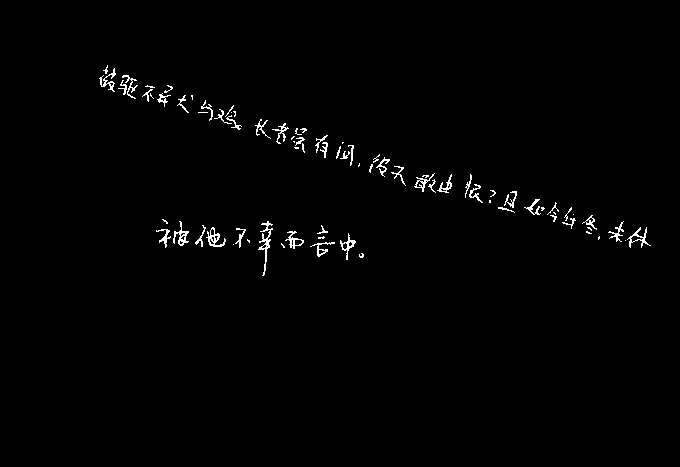 被驱不异犬与鸡。长者虽有问，役夫敢申恨？且如今年冬，未休
被他不幸而言中。